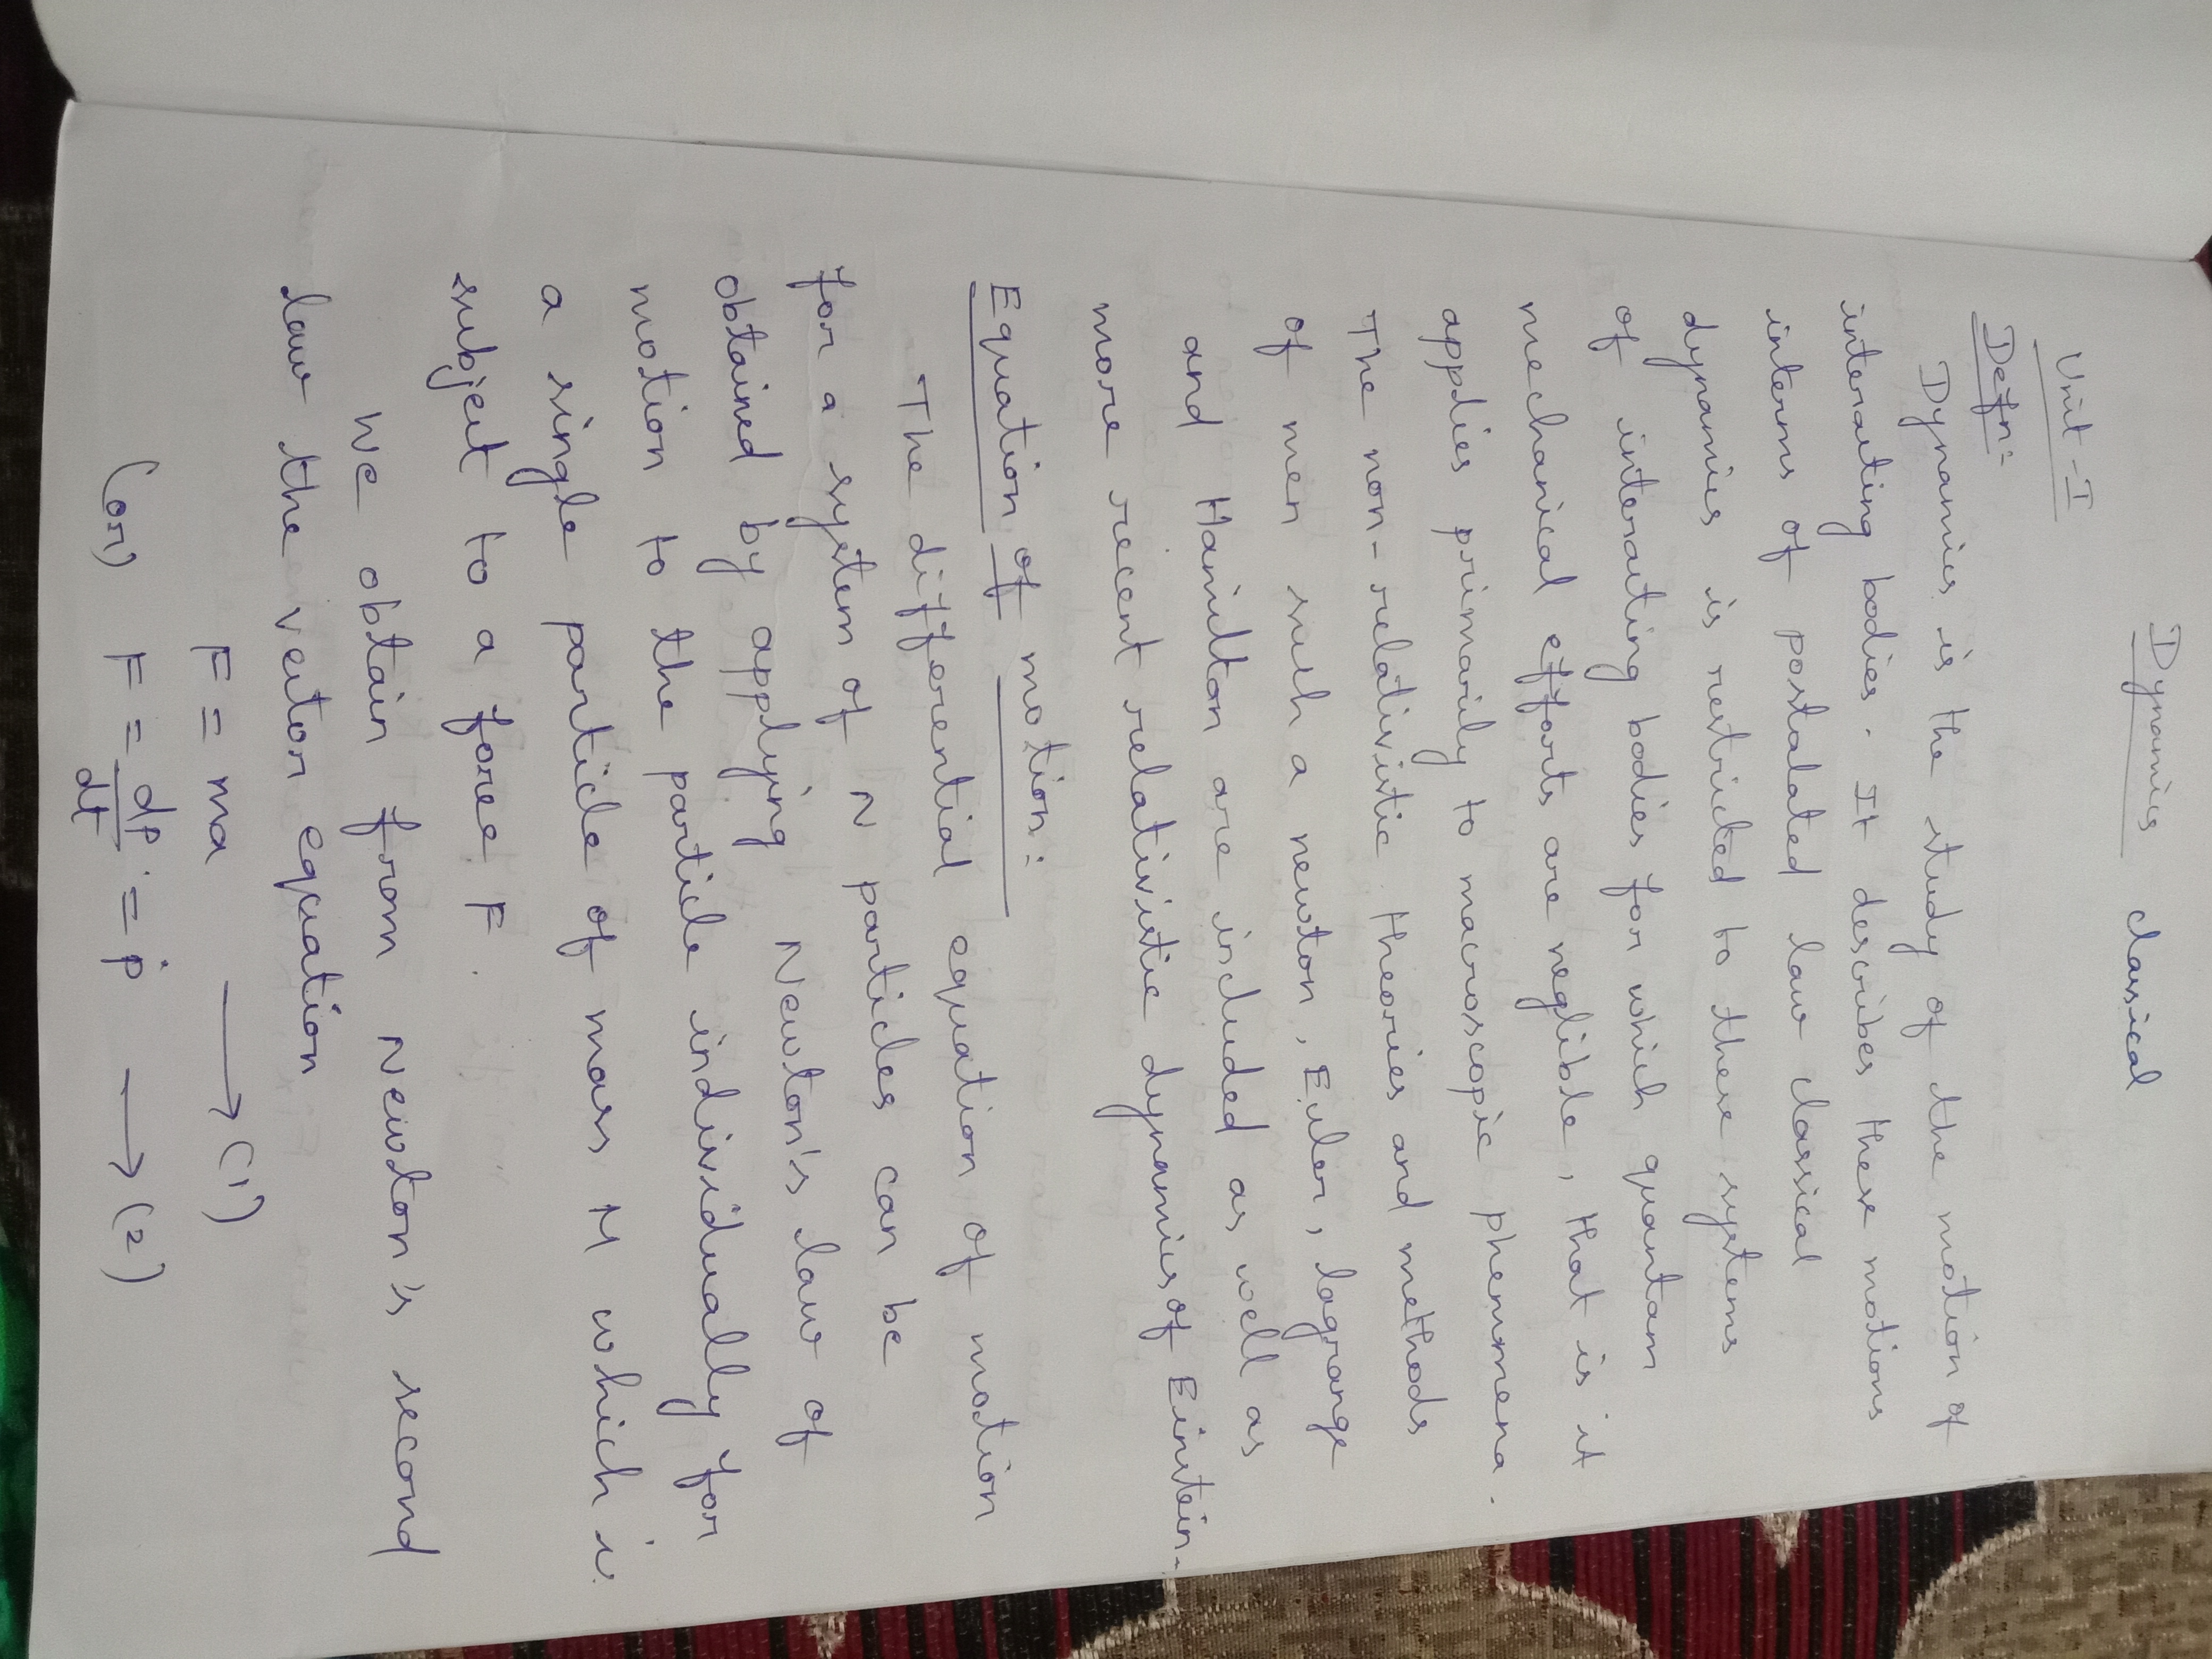 Dynamics classical
Unit-I
Defn:
Dynamics is the study of the motion of
interacting bodies. It describes these motions
interms of postalated law classical
dynamics is restricted to these systems
of interacting bodies for which quantam
mechanical efforts are neglible, that is it
applies primarily to macroscopic phenmmena.
The non-relativistic theories and methods
of men such a newton, Euler, lagrange
and Hamilton are included as well as
more recent relativistic dynamics of Einstein.
Equation of motion:
The differential equation of motion
for a system of N particles can be
obtained by applying Newton's law of
motion to the particle individually for
a single particle of mass M which is
subject to a force F.
We obtain from Newton's second
law the vector equation
F = ma → (1)
(or) F = dp/dt = ṗ → (2)